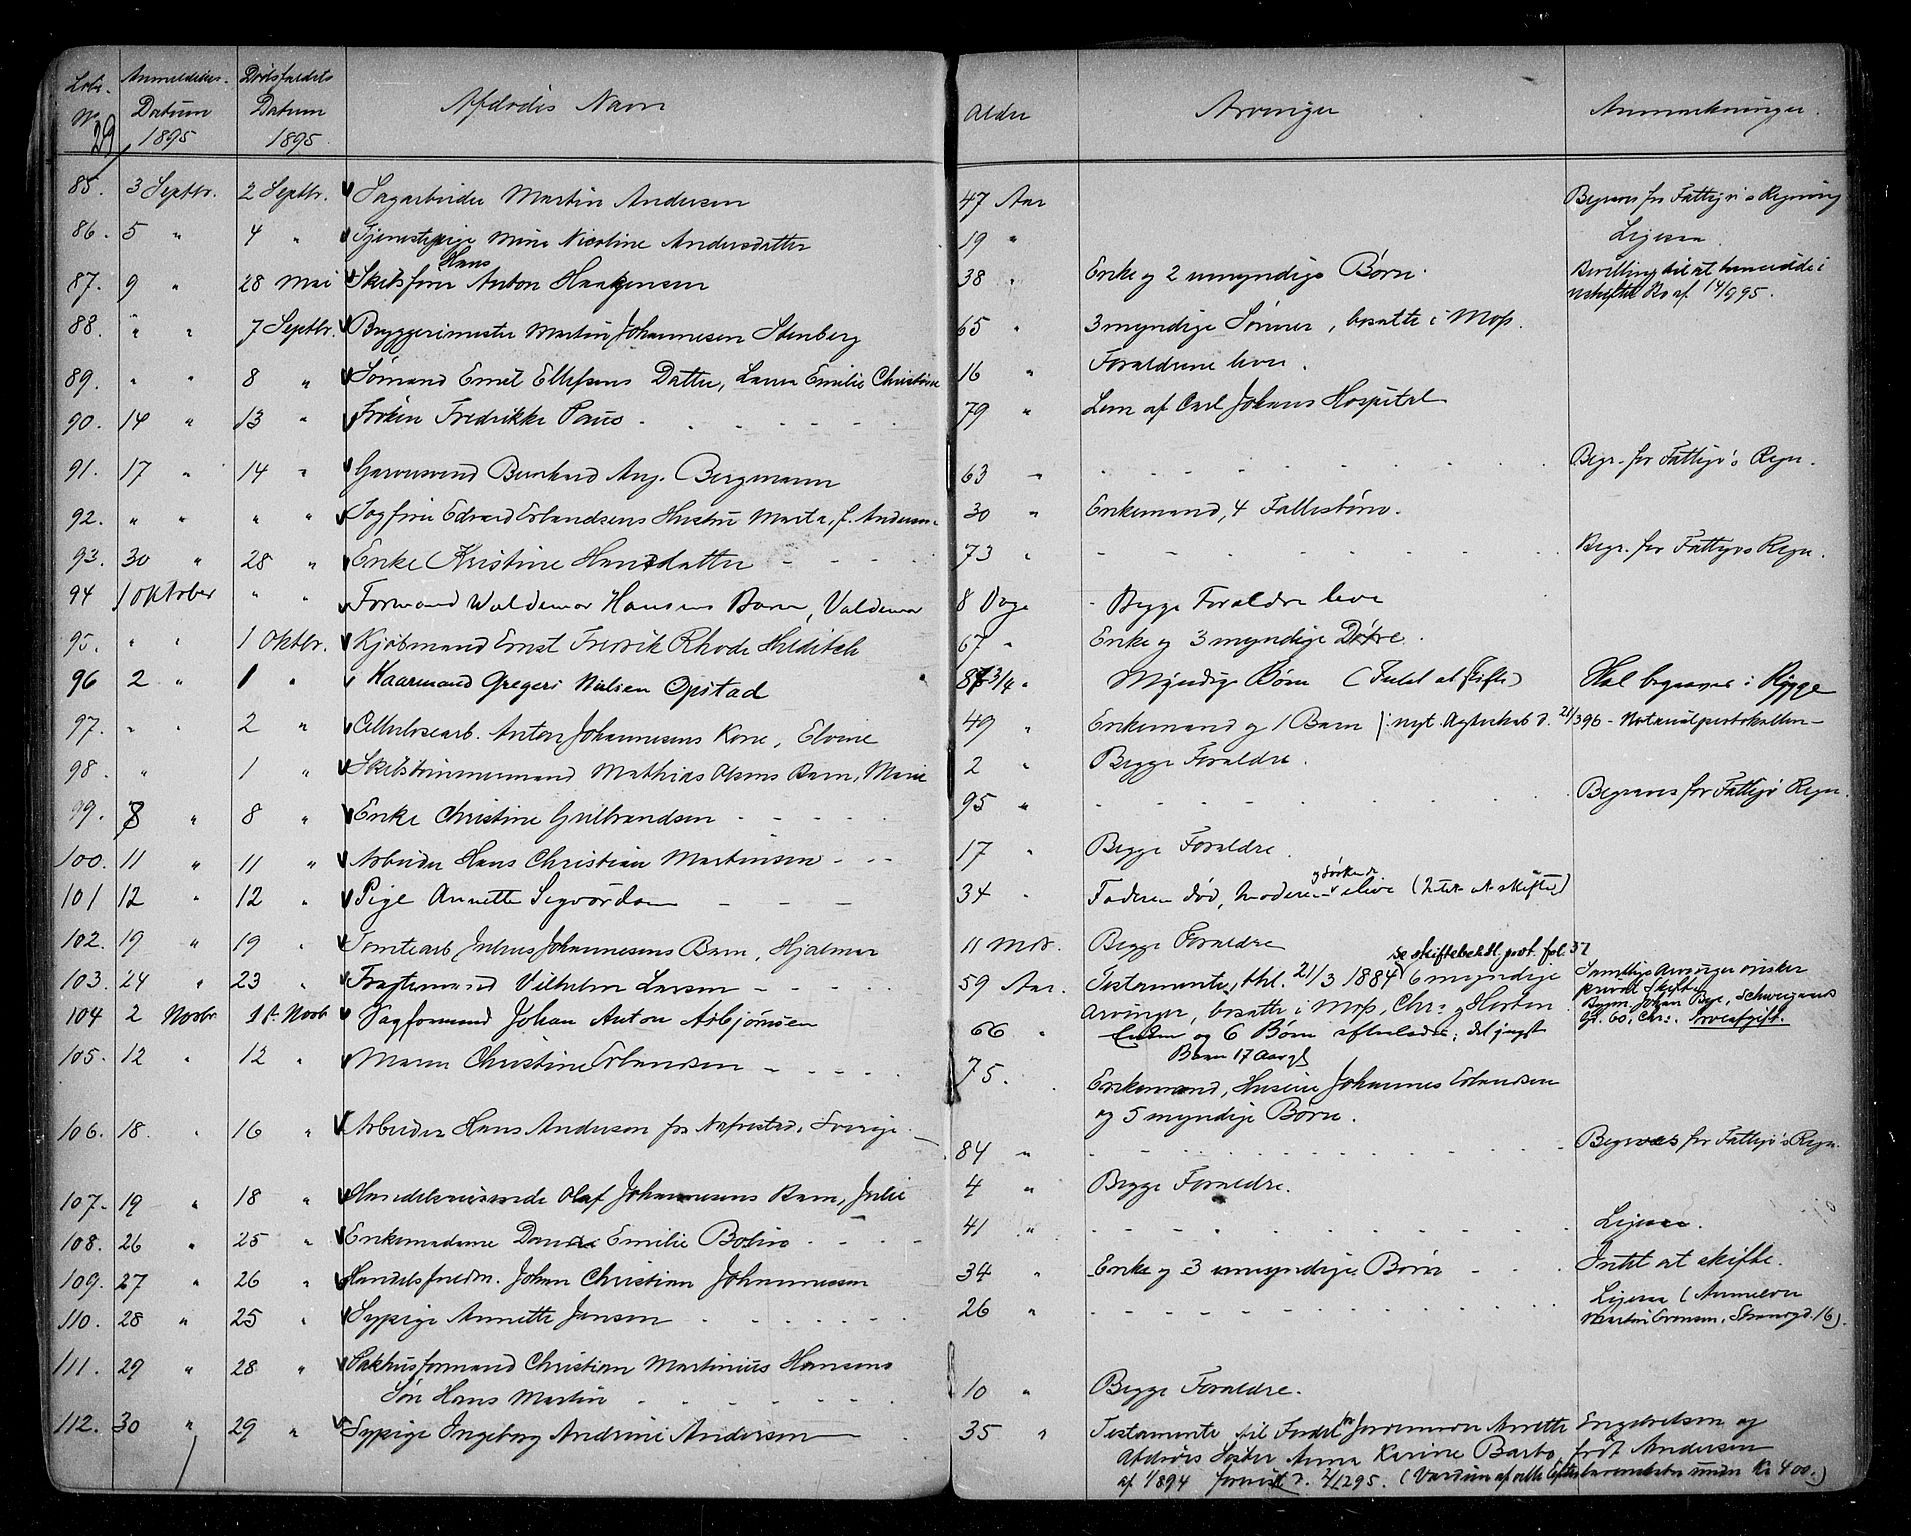 Løbe- Anmeldelses- Dødsfaldets Afdødes Navn Alder Arvinger Anmærkninger.
No Datum Datum
29 1895 1895.
85. 3 Septbr. 2 Septbr. Sagarbeider Martin Andersen 47 Aar Begraves for Fattigv's Regning
86. 5 " 4 " Tjenestepige Mina Nicoline Andersdatter 19 " Ligesaa.
Hans
87. 9 " 28 Mai Skibsfører Anton Haagensen 38 " Enke og 2 umyndige Børn. Bevilling til at hensidde i
uskiftet Bo af 14/9 95.
88. " " 7 Septbr. Bryggerimester Martin Johannesen Stenberg 65 " 3 myndige Sønner, bosatte i Moss.
89. " " 8 " Sømand Emil Ellefsens Datter, Laura Emilie Christine 16 " Forældrene lever.
90. 14 " 13 " Frøken Fredrikke Paus 79 " Lem af Carl Johans Hospital
91. 17 " 14 " Garversvend Bernhard Aug. Bergmann 63 " Begr. for Fattigv's Regn.
92. " " " " Togfører Edvard Erlandsens Hustru Marta, f. Andersen 30 " Enkemand, 4 Fællesbørn.
93. 30 " 28 " Enke Kristine Hansdatter 73 " Begr. for Fattigvs Regn.
94 1 Oktober " " Formand Waldemar Hansens Barn, Valdemar 8 Dage Begge Forældre leve
95. " " 1 Oktbr. Kjøbmand Ernst Fredrik Rhode Hilditch 67 " Enke og 3 myndige Døtre.
96 2 " 1 " Gaarmand Gregers Nielsen Opstad 87 3/4 " Myndige Børn (Intet at skifte) Skal begraves i Rygge
97. " " 2 " Cellulosearb. Anton Johannesens Kone, Elvine 49 " Enkemand og 1 Barn /: nyt Ægteskab d. 21/3 96 - Notarialprotokollen -
98. " 1 " Skibstømmermand Mathias Olsens Barn, Marie 2 " Begge Forældre.
99. 8 " 8 " Enke Christine Gulbrandsen 95 " Begraves for Fattigv Regn.
100. 11 " 11 " Arbeider Hans Christian Martinsen 17 " Begge Forældre.
101 12 " 12 " Pige Annette Sigvardsen 34 " Faderen død, Moderen og søskende i live (Intet at skifte)
102. 19 " 19 " Tomtearb Julius Johannesens Barn, Hjalmar 11 Mdr. Begge Forældre
se skiftebehdl. prot. fol. 37
103. 24 " 23 " Fragtemand Vilhelm Larsen 59 Aar. Testamente, thl. 21/3 1884, 6 myndige Samtlige Arvinger ønsker
Arvinger, bosatte i Moss, Chr: og Horten privat Skifte
Bygm. Johan Bye, Schweigaards
Gd. 60, Chr:. Arveafgift.
104 2 Novbr 1st Novb Sagformand Johan Anton Asbjørnsen 66 " Enken og 6 Børn efterlades; det yngst
Barn 17 Aargl
105. 12 " 12 " Maren Christine Erlandsen 75. Enkemand, Huseier Johannes Erlandsen
og 5 myndige Børn.
106. 18. " 16 " Arbeider Hans Anderson fra Nafverstad, Sverige 84 " Begraves for Fattigv's Regn.
107. 19 " 18 " Handelsreisende Olaf Johannesens Barn, Julie 4 " Begge Forældre.
108. 26 " 25 " Enkemadame Emilie Bolin 41 " Ligesaa.
109. 27 " 26 " Handelsfuldm. Johan Christian Johannessen 34 " Enke og 3 umyndige Børn Intet at skifte.
110. 28 " 25 " Sypige Annette Jensen 26 " Ligesaa (Anmelder
Martin Evensen, Strandgd. 16).
111. 29 " 28 " Pakhusformand Christian Martinius Hansens
Søn Hans Martin 10 " Begge Forældre.
112. 30 " 29 " Sypige Ingeborg Andrine Andersen 35 " Testamente til Fordel for Jordemoder Annette Engebretsen og
Afdødes Søster Anna Karine Barbo, født Andersen
af 1/8 94 d. 2/12 95. (Værdien af alle Efterladenskaber under Kr 400.)